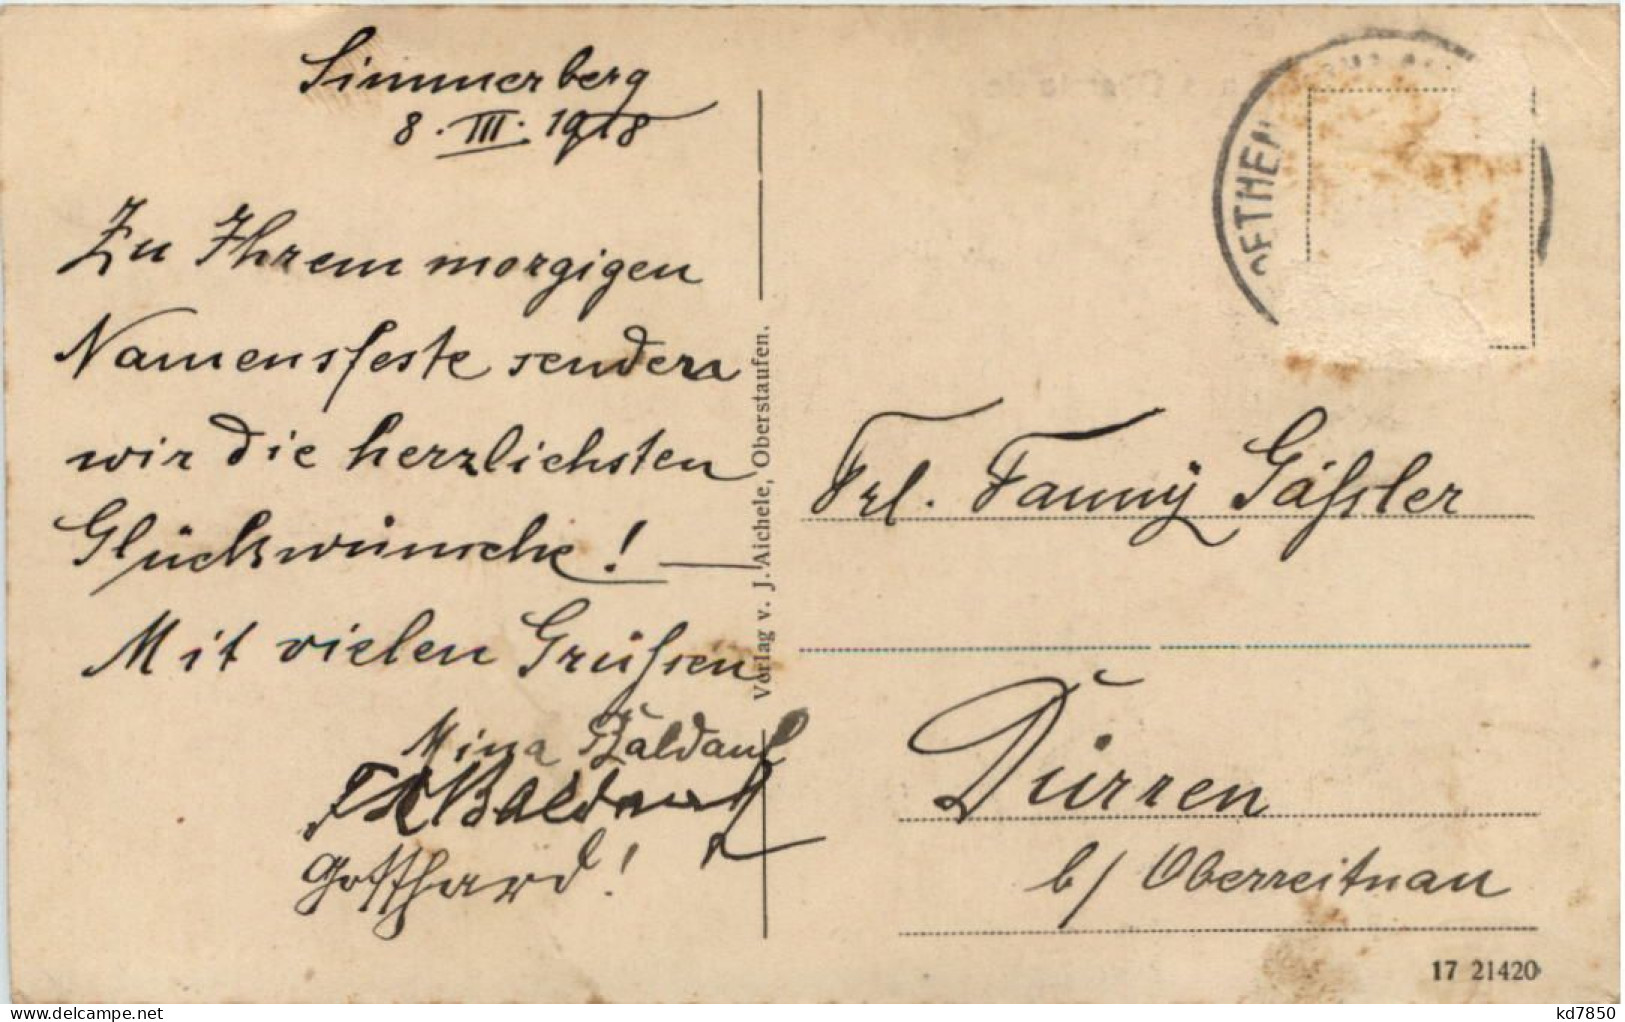 Simmerberg
8. III. 1918
Zu Ihrem morgigen
Namensfeste senden
wir die herzlichsten
Glückwünsche! —
Mit vielen Grüßen
Mina Baldauf
Baldauf
Gotthard!
Verlag v. J. Aichele, Oberstaufen.
OFTHEN
Frl. Fanny Gäßler
Dürren
b/ Oberreitnau
17 21420
kd7850